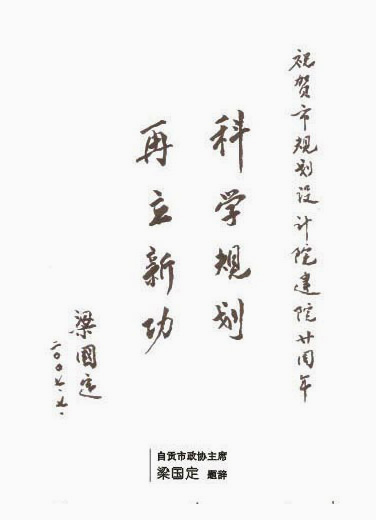 祝贺市规划设计院建院廿周年
科学规划
再立新功
梁國定
自贡市政协主席
梁国定 题辞